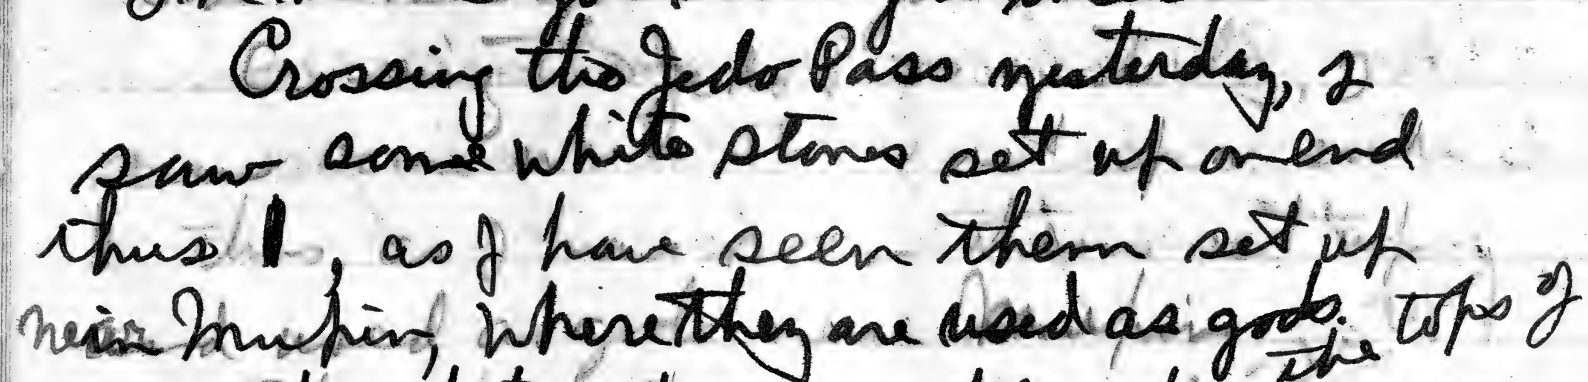 Crossing the Jedo Pass yesterday, I
saw some white stones set up on end
thus , as I have seen them set up
in Mupin, where they are used as gods. tops of
the